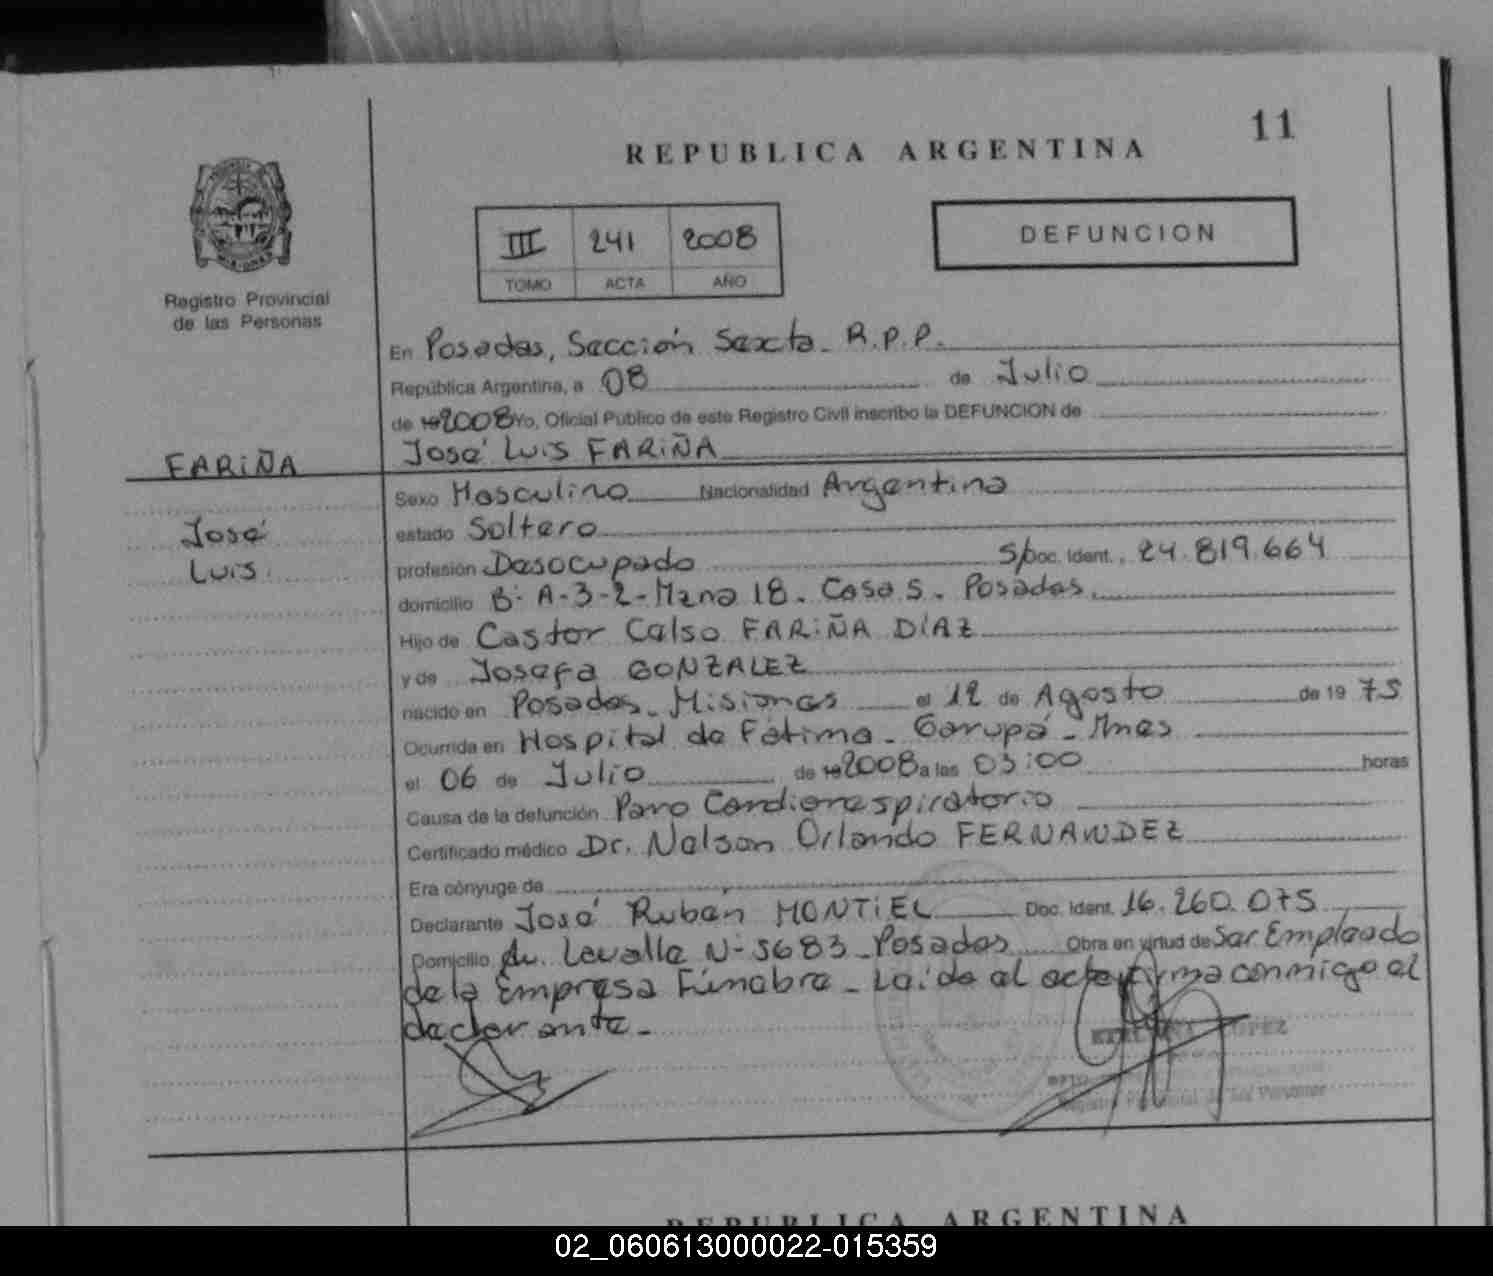 11
REPUBLICA ARGENTINA
III 241 2008
TOMO ACTA AÑO
DEFUNCION
Registro Provincial
de las Personas
En Posadas, Sección Sexta. R.P.P.
República Argentina, a 08 de Julio
de 19 2008 Yo, Oficial Público de este Registro Civil inscribo la DEFUNCION de
José Luis FARIÑA
FARIÑA
José
Luis
Sexo Masculino Nacionalidad Argentina
estado Soltero
profesión Desocupado S/Doc. Ident. 24.819.664
domicilio B: A-3-2-Mzna 18. Casa 5. Posadas.
Hijo de Castor Celso FARIÑA DIAZ
y de Josefa GONZALEZ
nacido en Posadas. Misiones el 12 de Agosto de 19 75
Ocurrida en Hospital de Fátima. Garupá. Mnes
el 06 de Julio de 19 2008 a las 03:00 horas
Causa de la defunción Paro Cardiorespiratorio
Certificado médico Dr. Nelson Orlando FERNANDEZ
Era cónyuge de
Declarante José Ruben MONTIEL Doc. Ident. 16.260.075
Domicilio Av. Lavalle N- 5683. Posadas Obra en virtud de Ser Empleado
de la Empresa Fúnebre. Leída el acta firma conmigo el
declarante.
LOPEZ
Registro Provincial de las Personas
REPUBLICA ARGENTINA
02_060613000022-015359